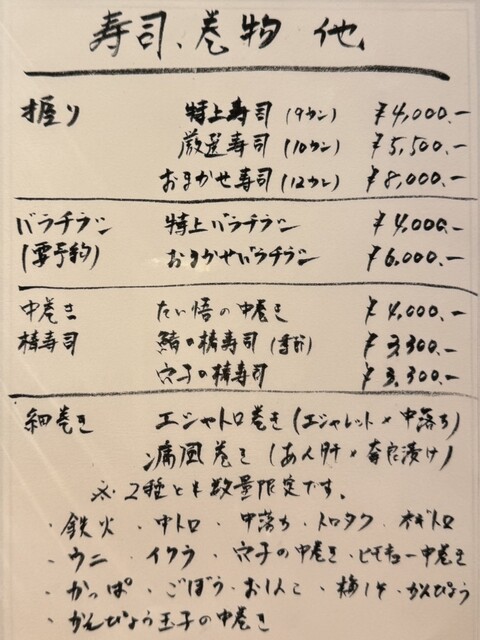 寿司、巻物 他
握り 特上寿司 (9カン) ¥4,000.-
厳選寿司 (10カン) ¥5,500.-
おまかせ寿司 (12カン) ¥8,000.-
バラチラシ 特上バラチラシ ¥4,000.-
(要予約) おまかせバラチラシ ¥6,000.-
中巻き たい悟の中巻き ¥4,000.-
棒寿司 鯖の棒寿司 (季節) ¥3,300.-
穴子の棒寿司 ¥3,300.-
細巻き エシャトロ巻き (エシャレット×中落ち)
痛風巻き (あん肝×奈良漬け)
※2種とも数量限定です。
・鉄火 ・中トロ ・中落ち ・トロタク ・ネギトロ
・ウニ ・イクラ ・穴子の中巻き ・ヒモキュー中巻き
・かっぱ ・ごぼう ・おしんこ ・梅しそ ・かんぴょう
・かんぴょう玉子の中巻き